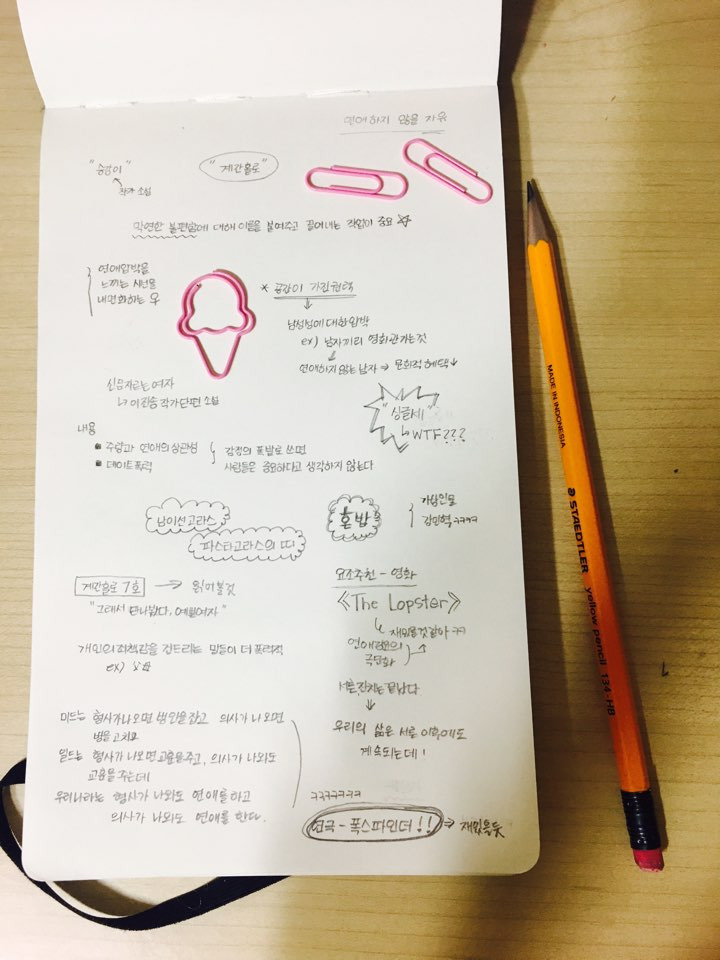 연애하지 않을 자유
"숭앙이"
작가 소설
"계간홀로"
막연한 불편함에 대해 이름을 붙여주고 끌어내는 작업이 중요
연애압박을
느끼는 시선을
내면화하는 우
* 공간이 가진권력
남성성에대한압박
ex) 남자끼리 영화관가는것
연애하지않는남자 → 문화적 혜택↓
신음자르는여자
↳ 이진송 작가단편 소설
"싱글세"
↳ WTF???
내용
주량과 연애의 상관성
데이트폭력
감정의 폭발로 쓰면
사람들은 중요하다고 생각하지 않는다
남이선고라스
파스타고라스의 띠
혼밥
가상인물
김민혁 ㅋㅋㅋㅋ
계간홀로 7호 → 읽어볼것
"그래서 만나봤다, 예쁜여자"
요조추천 - 영화
《The Lopster》
↳ 재밌을것같아 ㅋㅋ
연애관문의
극단화
개인의죄책감을 건드리는 말들이 더 폭력적
ex) 부모
서른,잔치는끝났다
우리의 삶은 서른이후에도
계속되는데!
미드는 형사가나오면 범인을잡고 의사가 나오면
병을고치고
일드는 형사가 나오면교훈을주고, 의사가 나와도
교훈을 주는데
우리나라는 형사가 나와도 연애를하고
의사가 나와도 연애를 한다.
ㅋㅋㅋㅋㅋㅋㅋ
연극 - 폭스파인더!! ⇒ 재밌을듯
MADE IN INDONESIA
STAEDTLER yellow pencil 134-HB